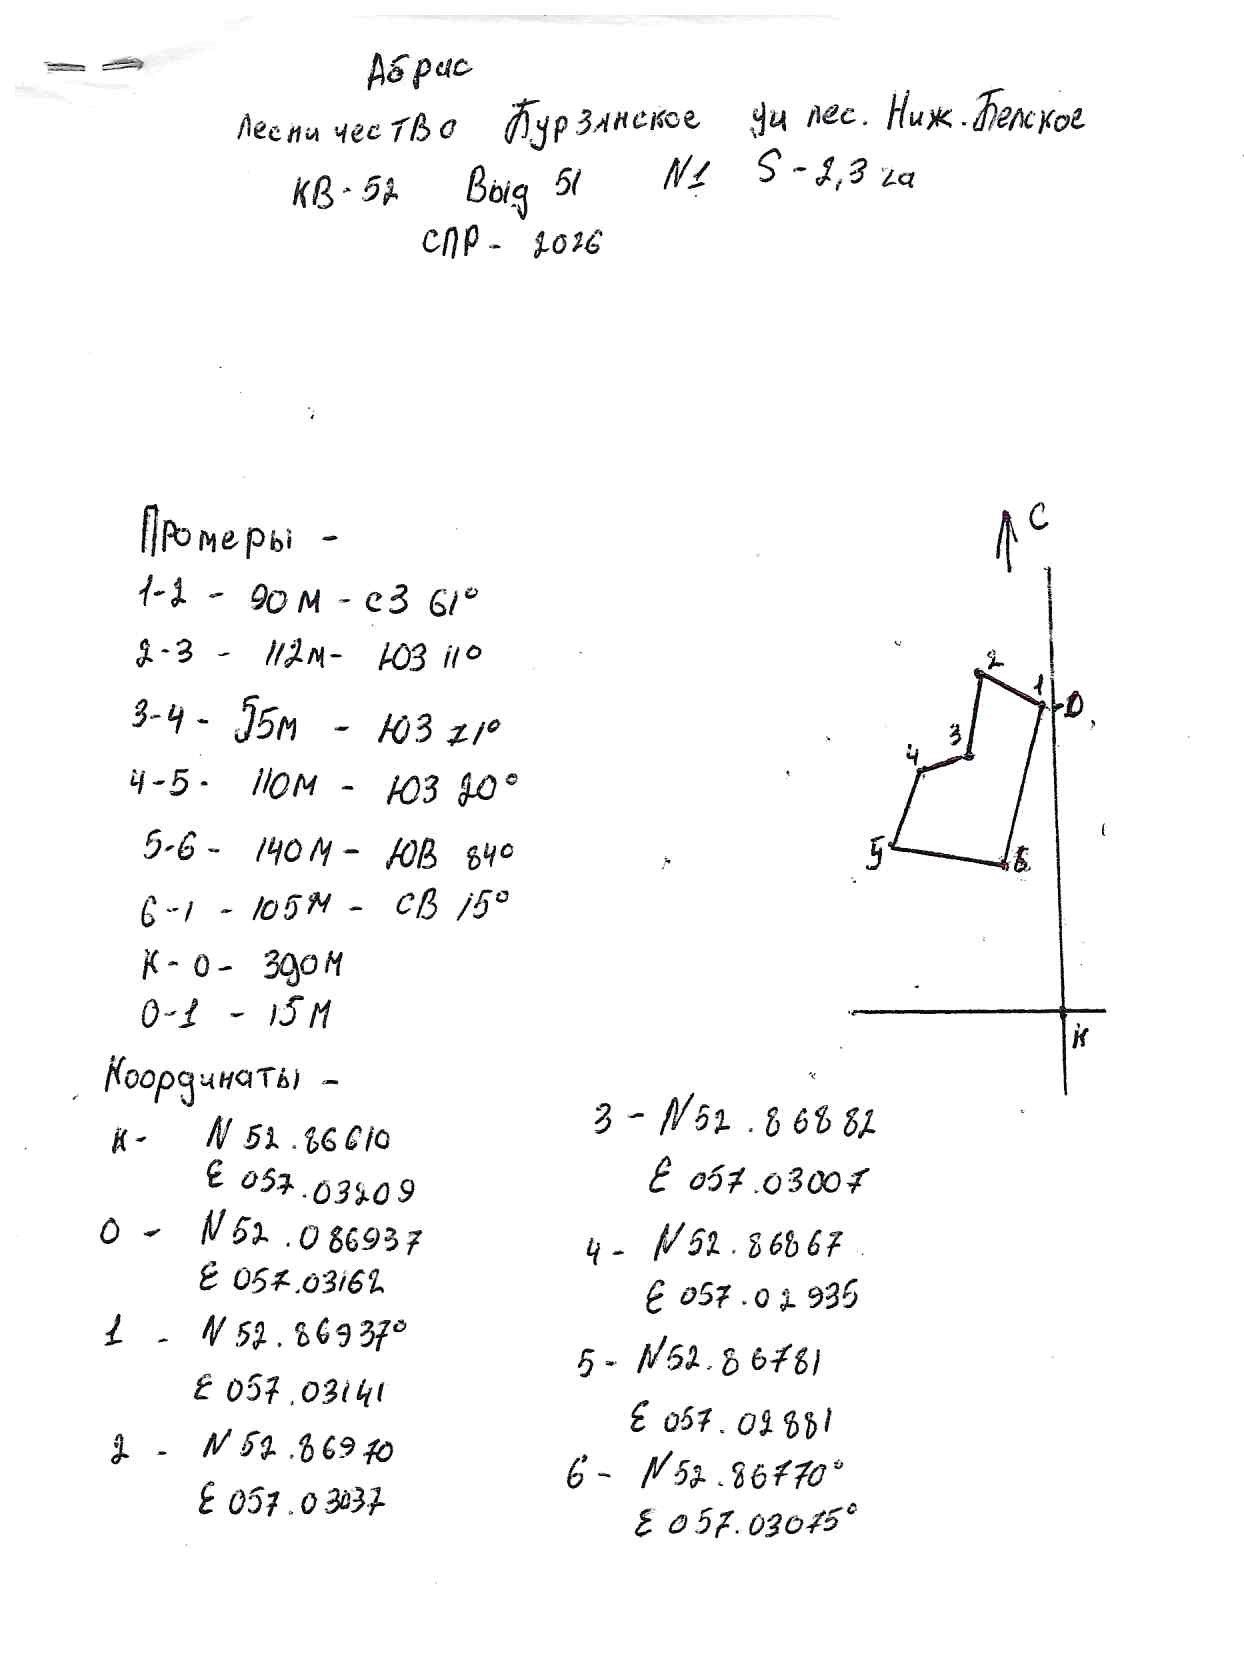 Абрис
Лесничество Бурзянское уч лес. Ниж. Бельское
КВ-52 Выд 51 №1 S-2,3 га
СПР- 2026
Промеры -
1-2 - 90м - СЗ 61°
2-3 - 112м - ЮЗ 11°
3-4 - 55м - ЮЗ 71°
4-5 - 110м - ЮЗ 20°
5-6 - 140м - ЮВ 84°
6-1 - 105м - СВ 15°
К-0 - 390м
0-1 - 15м
С
2
1
0
3
4
5
6
К
Координаты -
К- N 52.86610
E 057.03209
0 - N 52.086937
E 057.03162
1 - N 52.86937°
E 057.03141
2 - N 52.86970
E 057.03037
3 - N 52.86882
E 057.03007
4 - N 52.86867
E 057.02935
5 - N 52.86781
E 057.02881
6 - N 52.86770°
E 057.03075°